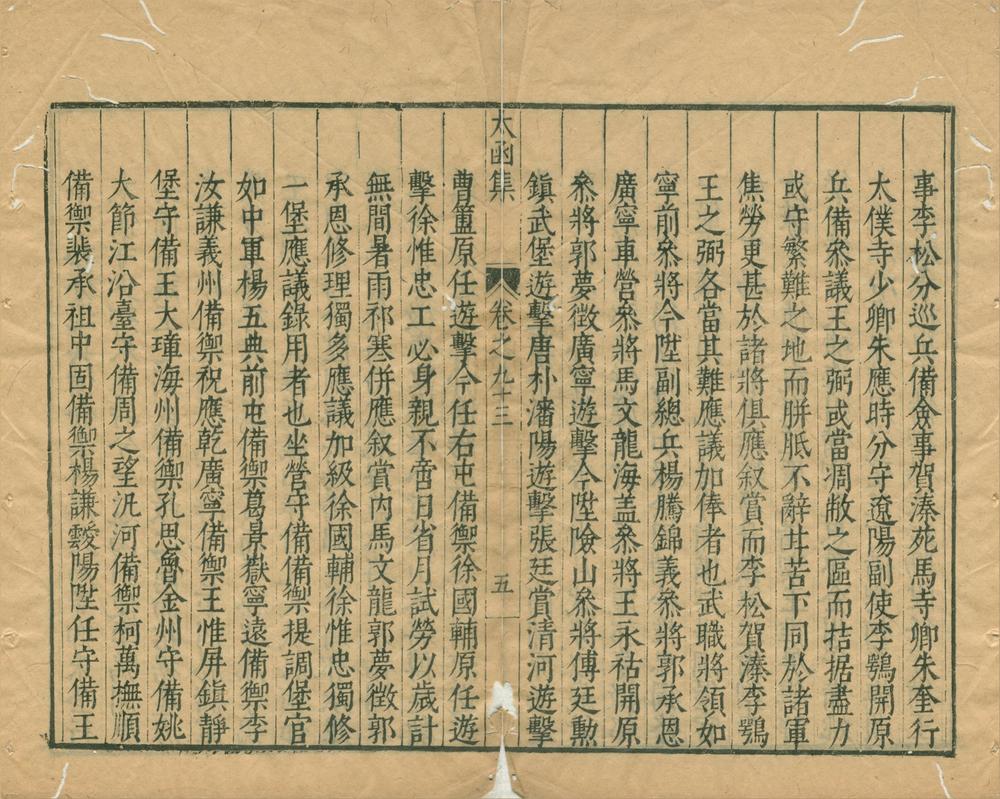 事李松分巡兵備僉事賀溱苑馬寺卿朱奎行
太僕寺少卿朱應時分守遼陽副使李鶚開原
兵備叅議王之弼或當凋敝之區而拮据盡力
或守繁難之地而胼胝不辭甘苦下同於諸軍
焦勞更甚於諸將俱應叙賞而李松賀溱李鶚
王之弼各當其難應議加俸者也武職將領如
寧前叅將今陞副總兵楊騰錦義叅將郭承恩
廣寧車營叅將馬文龍海盖叅將王永祜開原
叅將郭夢徵廣寧遊擊今陞險山叅將傅廷勲
鎮武堡遊擊唐朴瀋陽遊擊張廷賞清河遊擊
太函集 卷之九十三 五
曹簠原任遊擊今任右屯備禦徐國輔原任遊
擊徐惟忠工必身親不啻日省月試勞以歲計
無間暑雨祁寒併應叙賞内馬文龍郭夢徵郭
承恩修理獨多應議加級徐國輔徐惟忠獨修
一堡應議錄用者也坐營守備備禦提調堡官
如中軍楊五典前屯備禦葛景嶽寧遠備禦李
汝謙義州備禦祝應乾廣寧備禦王惟屏鎮靜
堡守備王大璋海州備禦孔思魯金州守備姚
大節江沿臺守備周之望汎河備禦柯萬撫順
備禦裴承祖中固備禦楊謙靉陽陞任守備王